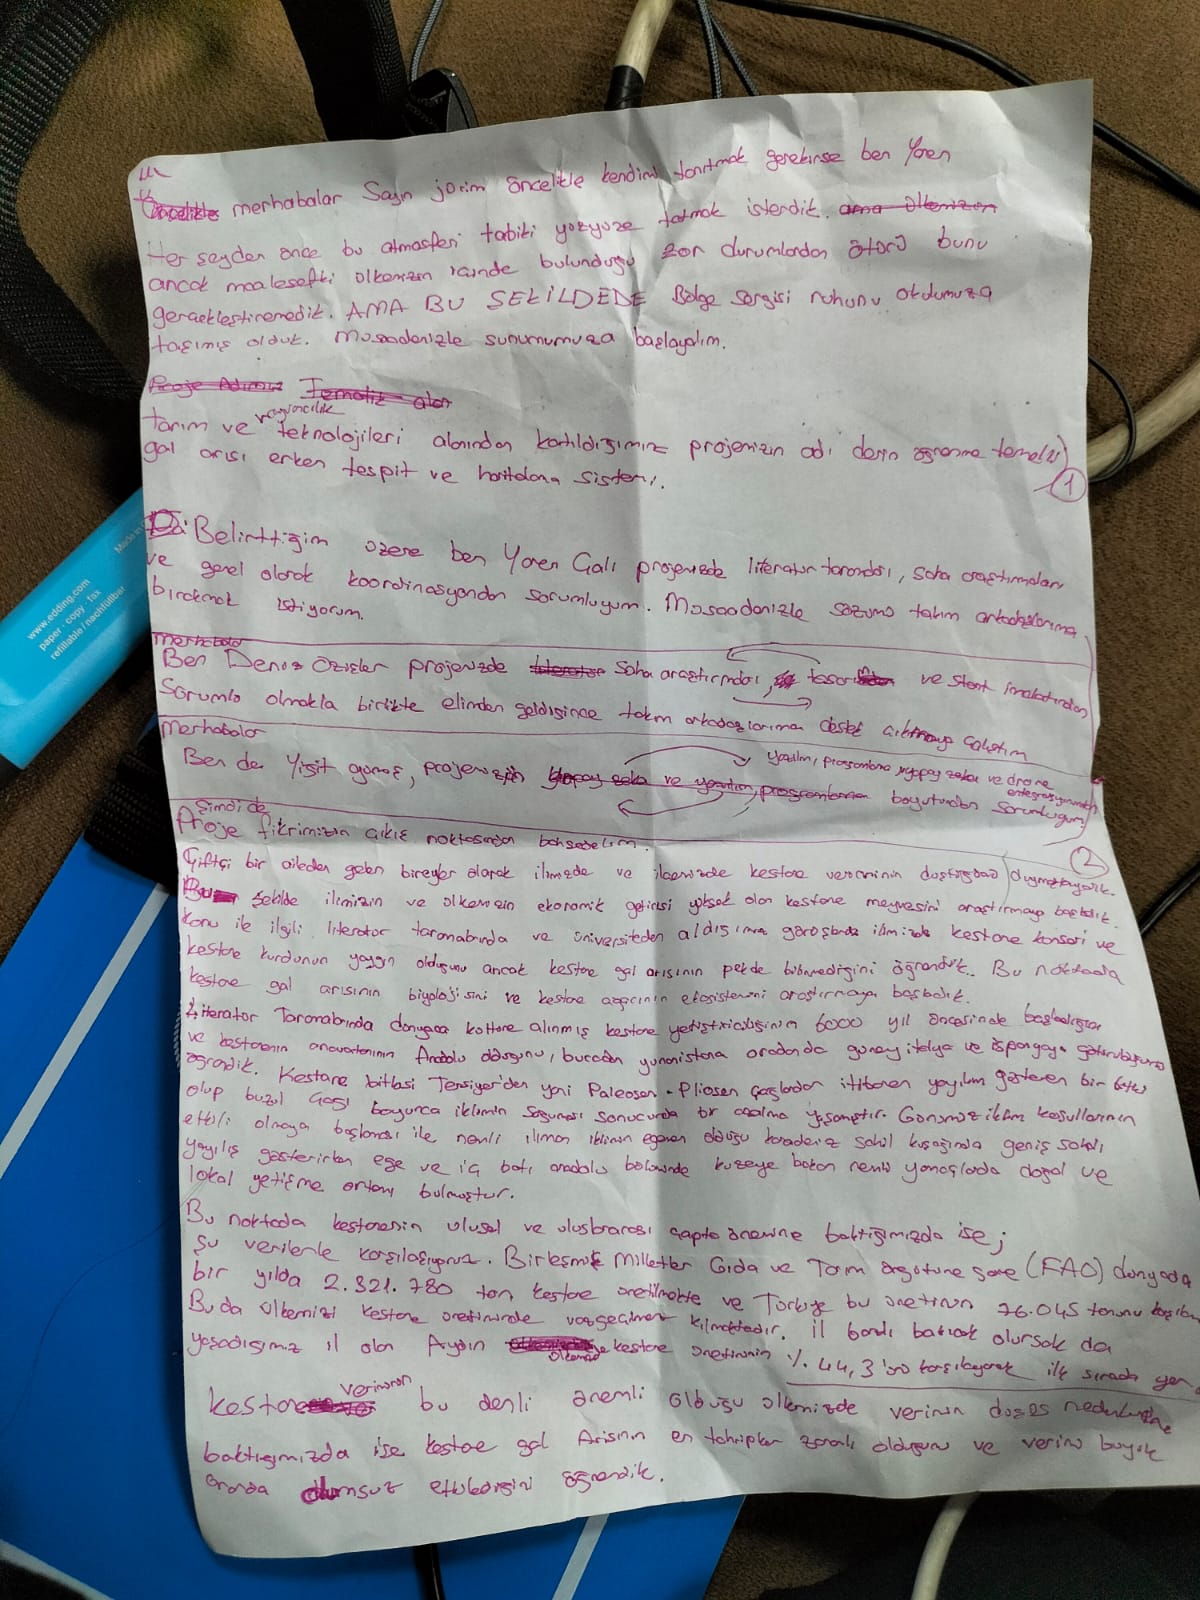 merhabalar Sayın jürim öncelikle kendimi tanıtmak gerekirse ben Yaren
Her şeyden önce bu atmosferi tabiki yüzyüze tatmak isterdik. ama ülkemizin
ancak maalesefki ülkemizin içinde bulunduğu zor durumlardan ötürü bunu
gerçekleştiremedik. AMA BU ŞEKİLDEDE Bölge sergisi ruhunu okulumuza
taşımış olduk. Müsaadenizle sunumumuza başlayalım.
Proje Adımız Tematik alan
hayvancılık
tarım ve teknolojileri alanından katıldığımız projemizin adı derin öğrenme temelli
gal arısı erken tespit ve haritalama sistemi.
1
Belirttiğim üzere ben Yaren Çalı projemizde literatür taraması, saha araştırmaları
ve genel olarak koordinasyondan sorumluyum. Müsaadenizle sözümü takım arkadaşlarıma
bırakmak istiyorum.
merhabalar
Ben Deniz Özişler projemizde literatür saha araştırması, ve stant imalatından
Sorumlu olmakla birlikte elimden geldiğince takım arkadaşlarıma destek çalıştım
merhabalar
yazılım, programlama, yapay zeka ve drone
entegrasyonundan
Ben de Yiğit güneş, projemizin yapay zeka ve yazılım, programlama boyutundan sorumluyum
Şimdi de
Proje fikrimizin çıkış noktasından bahsedelim.
2
Çiftçi bir aileden gelen bireyler olarak ilimizde ve ilçemizde kestane veriminin düştüğünü duymaktaydık.
Bu şekilde ilimizin ve ülkemizin ekonomik getirisi yüksek olan kestane meyvesini araştırmaya başladık
konu ile ilgili literatür taramalarında ve üniversiteden aldığımız görüşlerde ilimizde kestane kanseri ve
kestane kurdunun yaygın olduğunu ancak kestane gal arısının pekde bilinmediğini öğrendik. Bu noktada
kestane gal arısının biyolojisini ve kestane ağacının ekosistemini araştırmaya başladık.
Literatür Taramalarında dünyada kültüre alınmış kestane yetiştiriciliğinin 6000 yıl öncesinde başladığını
ve kestanenin anavatanının Anadolu olduğunu, buradan yunanistana oradanda güney italya ve ispanyaya götürüldüğünü
öğrendik. Kestane bitkisi Tersiyer'den yani Paleosen-Pliosen çağlardan itibaren yayılım gösteren bir bitki
olup buzul çağı boyunca iklimin soğuması sonucunda bir azalma yaşamıştır. Günümüz iklim koşullarının
etkili olmaya başlaması ile nemli ılıman iklimin egemen olduğu karadeniz sahil kuşağında geniş sahalı
yayılış gösterirken ege ve iç batı anadolu bölümünde kuzeye bakan nemli yamaçlarda doğal ve
lokal yetişme ortamı bulmuştur.
Bu noktada kestanenin ulusal ve uluslararası çapta önemine baktığımızda ise;
şu verilerle karşılaşıyoruz. Birleşmiş Milletler Gıda ve Tarım örgütüne göre (FAO) dünyada
bir yılda 2.321.780 ton kestane üretilmekte ve Türkiye bu üretimin 76.045 tonunu
Bu da ülkemizi kestane üretiminde vazgeçilmez kılmaktadır. İl bazlı bakacak olursak da
yaşadığımız il olan Aydın ülkemizde kestane üretiminin %44,3'ünü karşılayarak ilk sırada yer
kestane veriminin bu denli önemli olduğu ülkemizde verimin düşüş nedenlerine
baktığımızda ise kestane gal Arısının en tahripkar zararlı olduğunu ve verimi büyük
oranda olumsuz etkilediğini öğrendik.
www.edding.com
paper · copy · fax
refillable/nachfüllbar
Made in